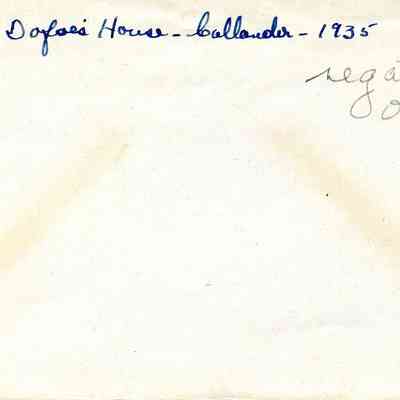 Dafoe's House - Callander - 1935
nega